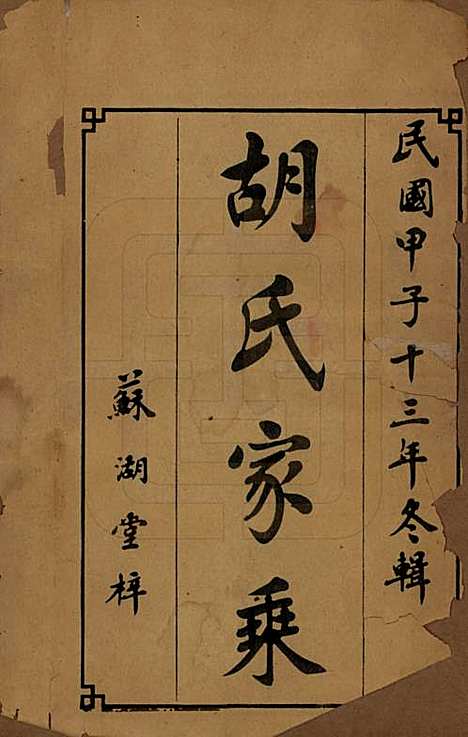 民國甲子十三年冬輯
胡氏家乘
蘇湖堂梓